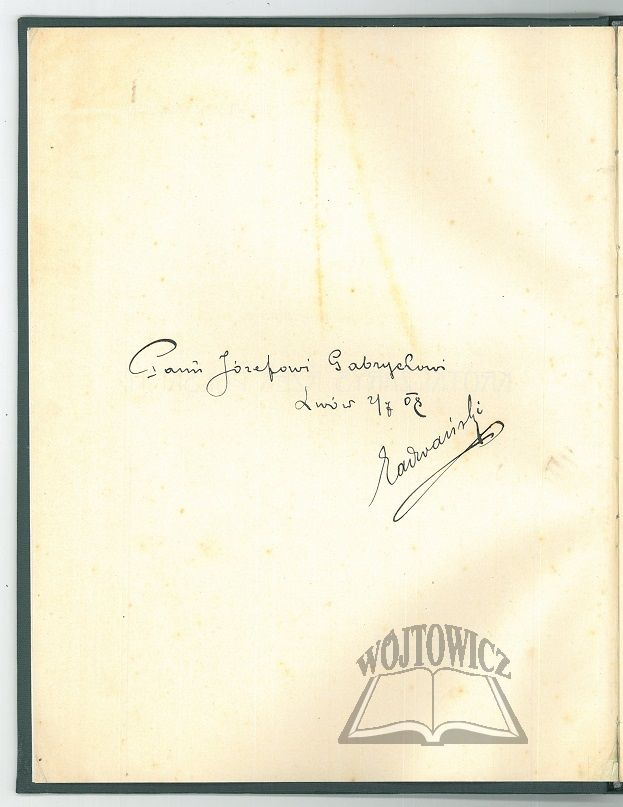 Panu Józefowi Gabrychowi
Lwów 2/7 08
Radwański
WÓJTOWICZ